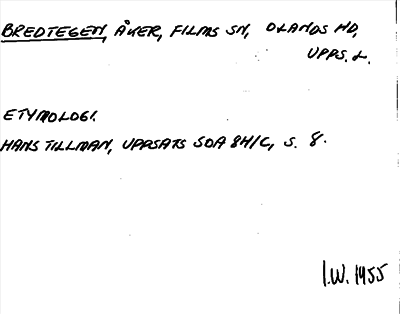 BREDTEGEN, ÅKER, FILMS SN, OLANDS HD,
UPPS. L.
ETYMOLOGI.
HANS TILLMAN, UPPSATS SOA 8H/C, S. 8.
I.W. 1955